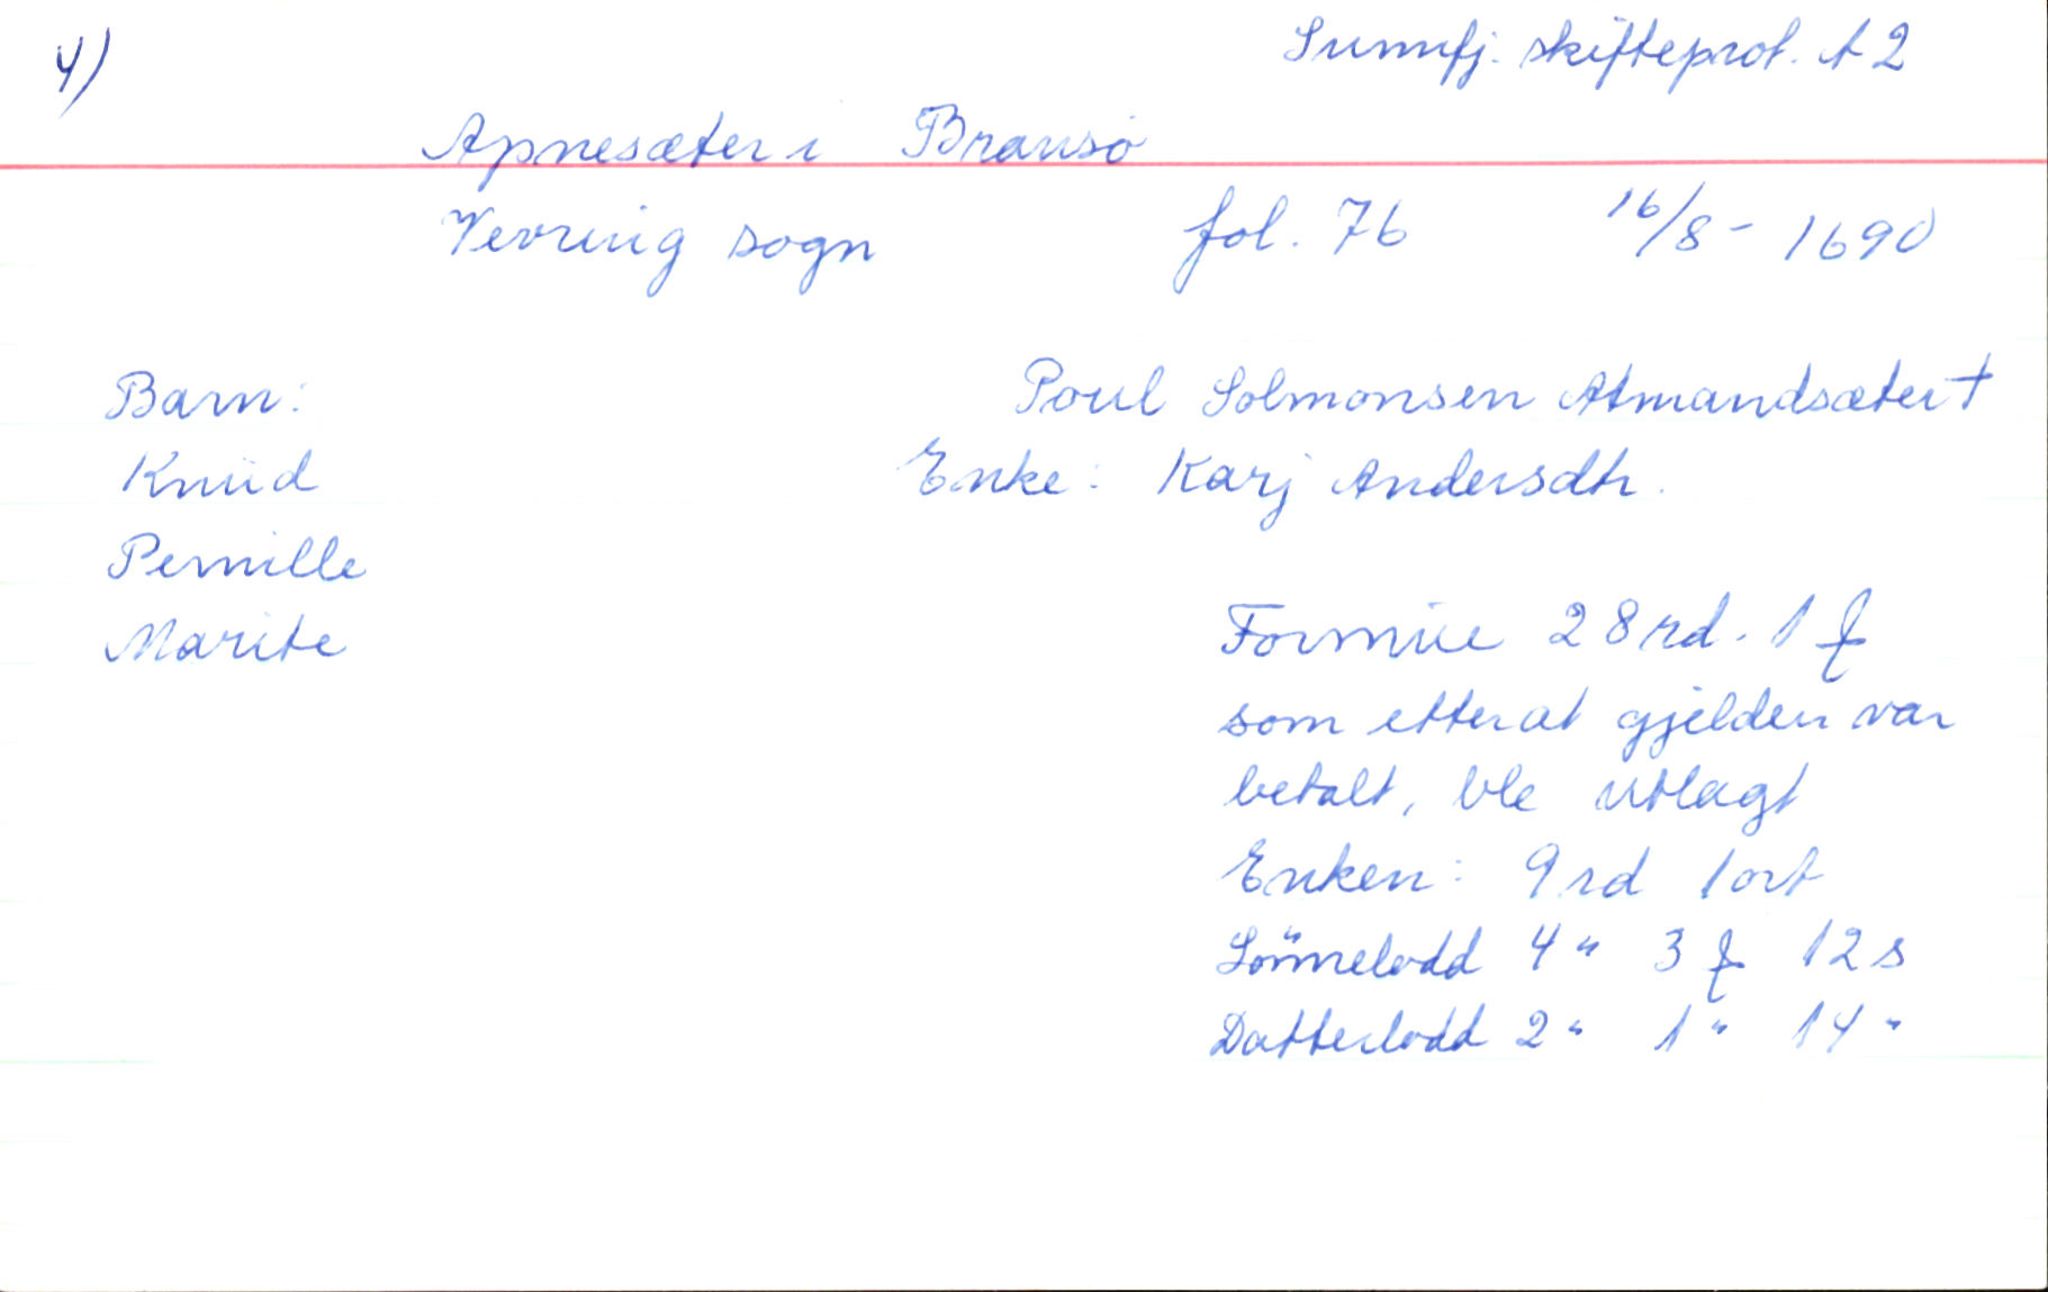 4)
Sunnfj. skifteprot. A 2
Apnesæter i Bransö
Vevring sogn fol. 76 16/8 - 1690
Barn: Poul Solmonsen Atmandsæter †
Knud Enke: Karj Andersdtr.
Pernille
Marite Formue 28 rd. 1 ƒ
som etterat gjelden var
betalt, ble utlagt
Enken: 9 rd 1 ort
Sönnelodd 4 " 3 ƒ 12 s
Datterlodd 2 " 1 " 14 "